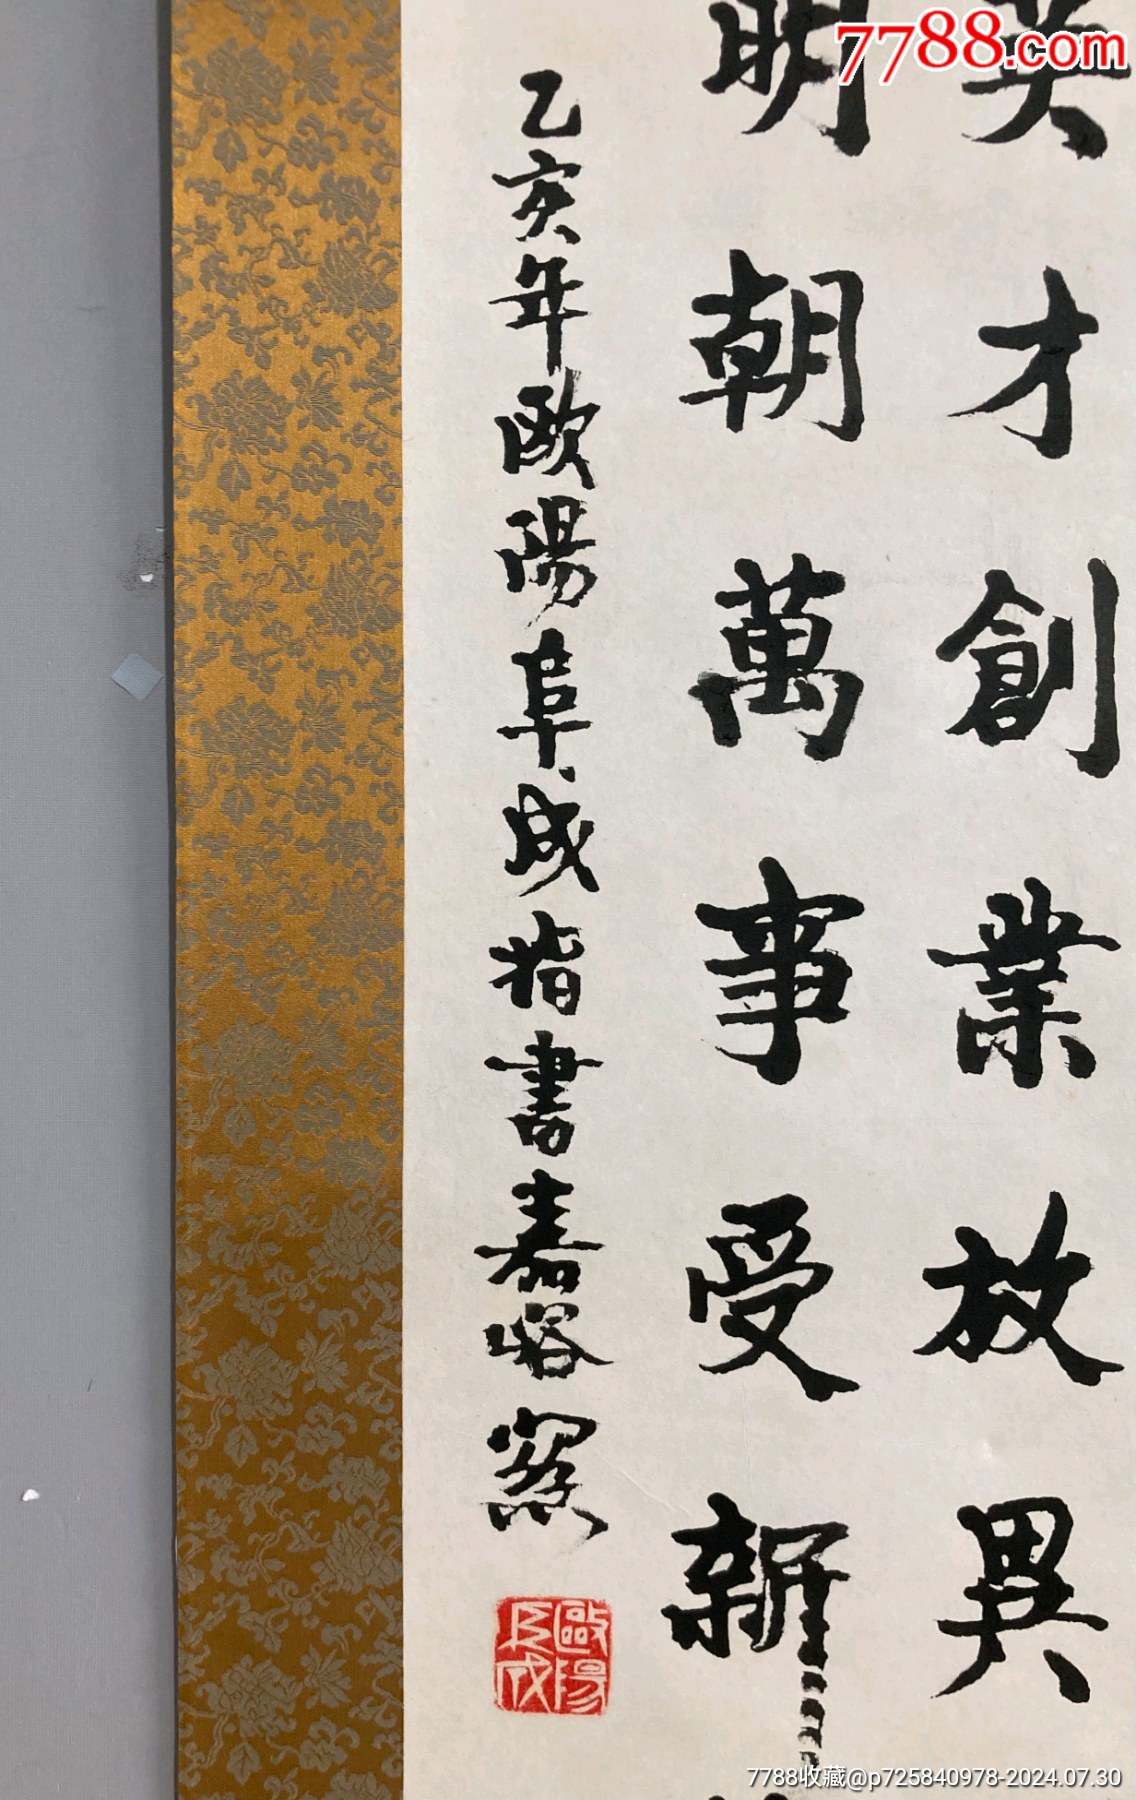 7788.com
英才創業放異
明朝萬事受新
乙亥年歐陽阜成指書嘉峪窯
歐陽阜成
7788收藏@p725840978-2024.07.30